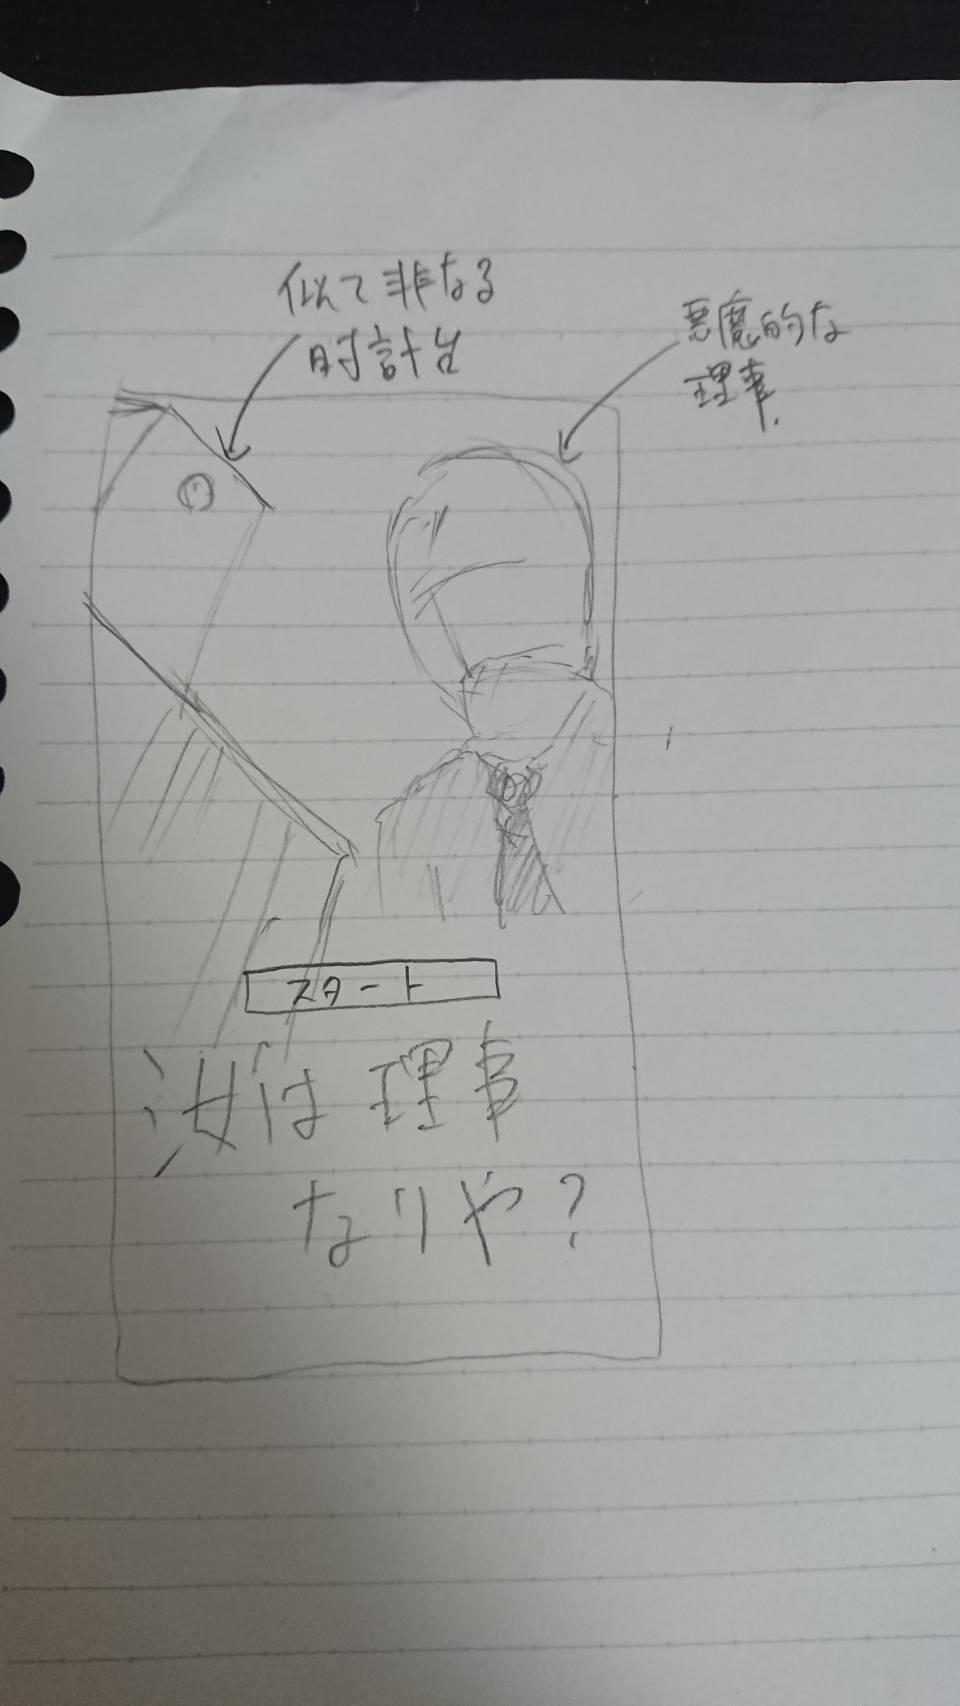 似て非なる
時計台
悪魔的な
理事.
スタート
汝は理事
なりや?